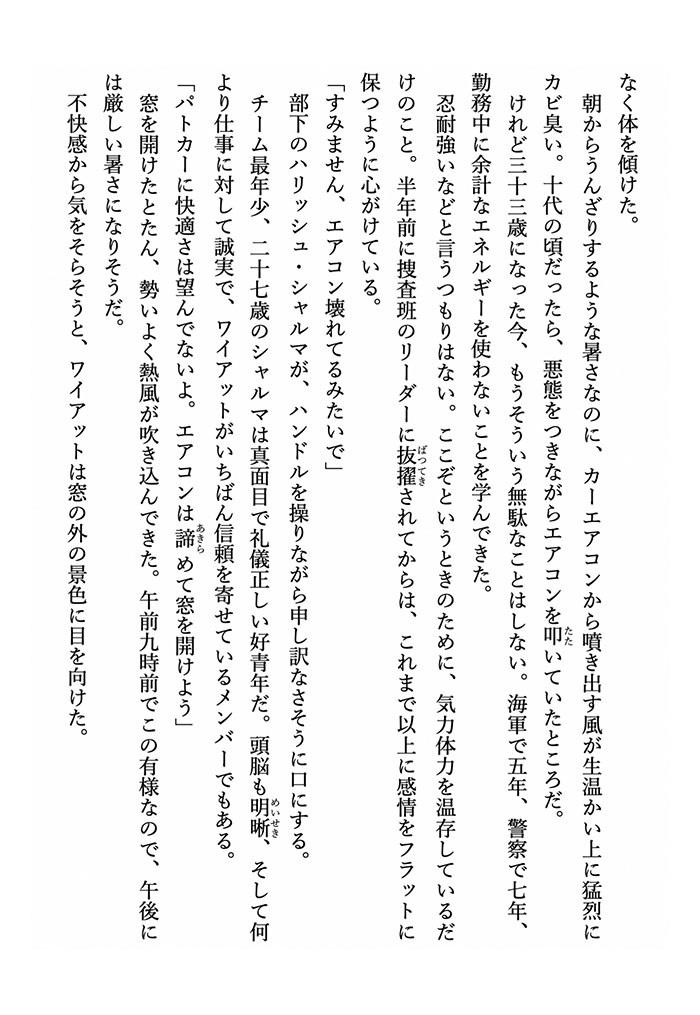 なく体を傾けた。
　朝からうんざりするような暑さなのに、カーエアコンから噴き出す風が生温かい上に猛烈に
カビ臭い。十代の頃だったら、悪態をつきながらエアコンを叩いていたところだ。
　けれど三十三歳になった今、もうそういう無駄なことはしない。海軍で五年、警察で七年、
勤務中に余計なエネルギーを使わないことを学んできた。
　忍耐強いなどと言うつもりはない。ここぞというときのために、気力体力を温存しているだ
けのこと。半年前に捜査班のリーダーに抜擢されてからは、これまで以上に感情をフラットに
保つように心がけている。
「すみません、エアコン壊れてるみたいで」
　部下のハリッシュ・シャルマが、ハンドルを操りながら申し訳なさそうに口にする。
　チーム最年少、二十七歳のシャルマは真面目で礼儀正しい好青年だ。頭脳も明晰、そして何
より仕事に対して誠実で、ワイアットがいちばん信頼を寄せているメンバーでもある。
「パトカーに快適さは望んでないよ。エアコンは諦めて窓を開けよう」
　窓を開けたとたん、勢いよく熱風が吹き込んできた。午前九時前でこの有様なので、午後に
は厳しい暑さになりそうだ。
　不快感から気をそらそうと、ワイアットは窓の外の景色に目を向けた。